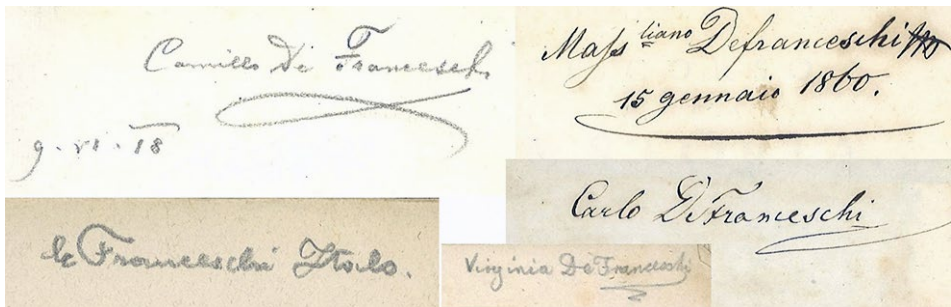 Camillo De Franceschi
9 · VI · 18
Mass liano Defranceschi
15 gennaio 1860.
Carlo De Franceschi
de Franceschi Italo.
Virginia De Franceschi